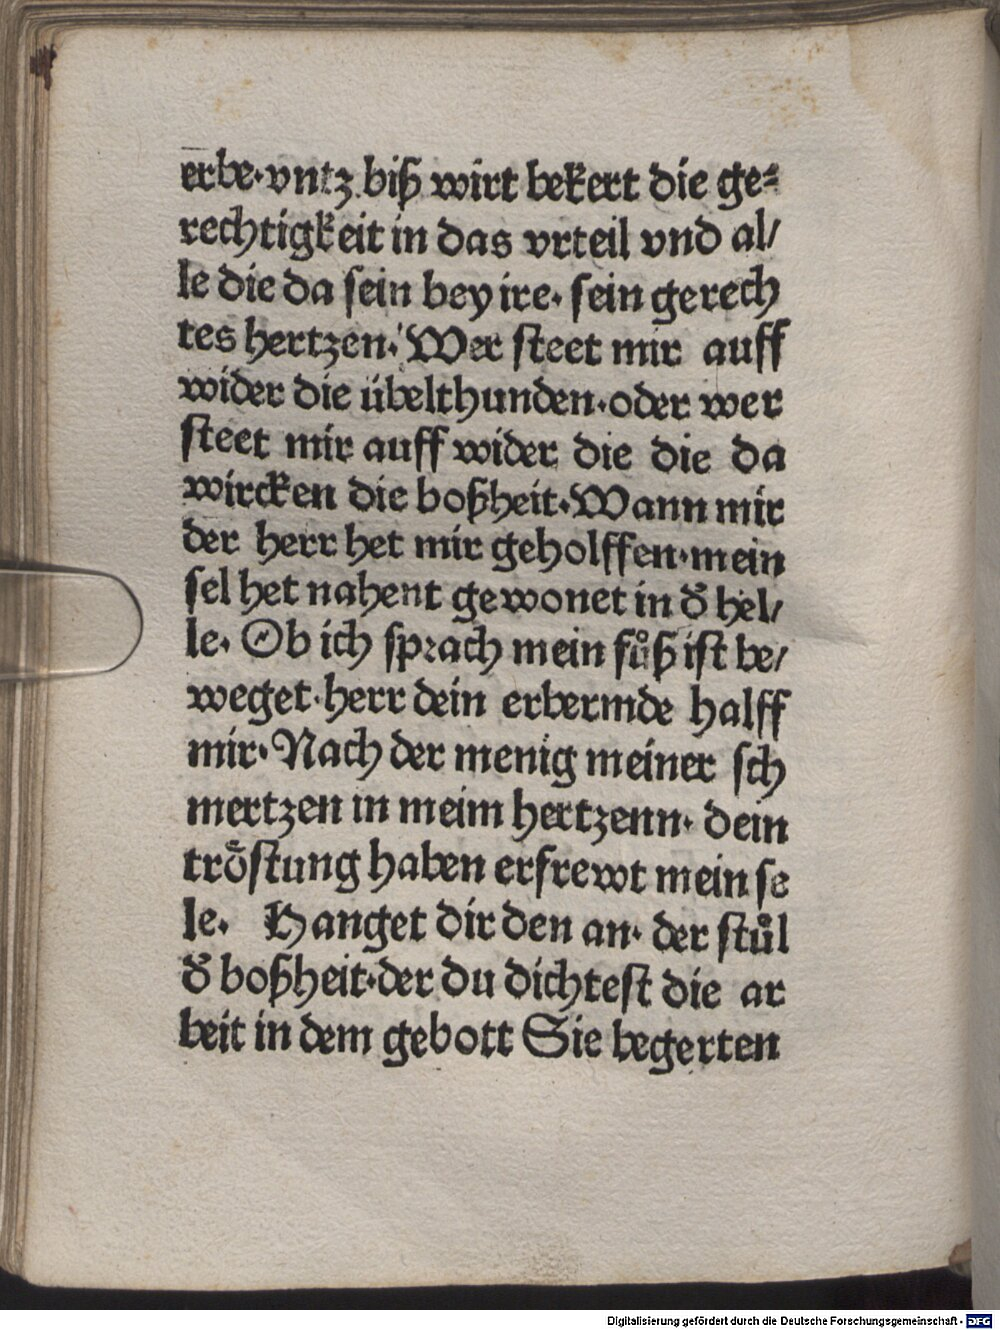 erbe·vntz biß wirt bekert die ge⸗
rechtigkeit in das vrteil vnd al/
le die da sein bey ire· sein gerech
tes hertzen· Wer steet mir auff
wider die übelthunden·oder wer
steet mir auff wider die die da
wircken die boßheit·Wann mir
der herr het mir geholffen·mein
sel het nahent gewonet in d̕ hel/
le· Ob ich sprach mein fůß ist be/
weget·herr dein erbermde halff
mir·Nach der menig meiner sch
mertzen in meim hertzenn· dein
tröstung haben erfrewt mein se
le· Hanget dir den an· der stůl
d̕ boßheit·der du dichtest die ar
beit in dem gebott Sie begerten
Digitalisierung gefördert durch die Deutsche Forschungsgemeinschaft - DFG